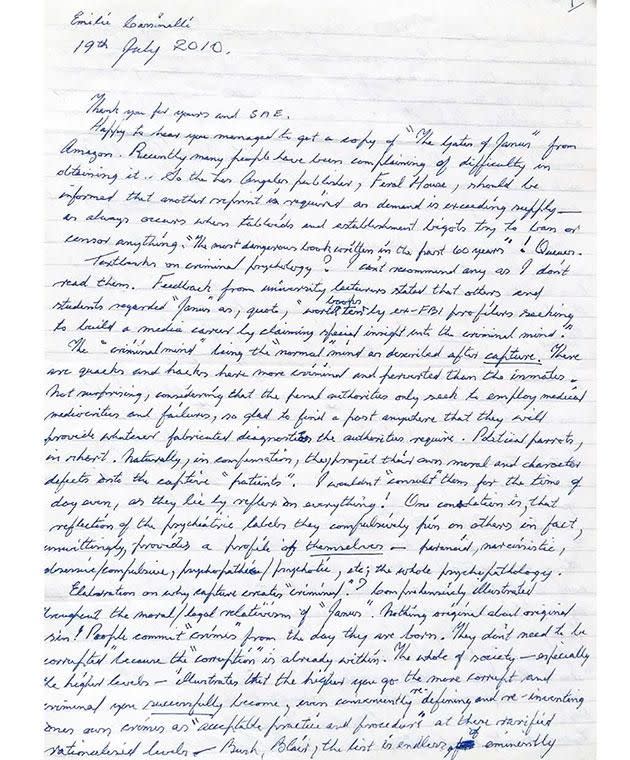 1
Emilie Cassinelli
19th July 2010.
Thank you for yours and SAE.
Happy to hear you managed to get a copy of "The Gates of Janus" from
Amazon. Recently many people have been complaining of difficulty in
obtaining it. So the Los Angeles publisher, Feral House, should be
informed that another reprint is required as demand is exceeding supply —
as always occurs when tabloids and establishment bigots try to ban or
censor anything. "The most dangerous book written in the past 60 years"! Queues.
Textbooks on criminal psychology? I can't recommend any as I don't
read them. Feedback from university lecturers stated that others and
students regarded "Janus" as, quote, " books by ex-FBI profilers seeking
to build a media career by claiming special insight into the criminal mind."
The "criminal mind" being the "normal" mind as described after capture. There
are quacks and hacks here more criminal and perverted than the inmates —
Not surprising, considering that the penal authorities only seek to employ medical
mediocrities and failures, so glad to find a post anywhere that they will
provide whatever fabricated diagnostics the authorities require. Political parrots,
in short. Naturally, in compensation, they project their own moral and character
defects onto the captive "patients". I wouldn't "consult" them for the time of
day even, as they lie by reflex on everything! One consolation is, that
reflection of the psychiatric labels they compulsively pin on others in fact,
unwittingly, provides a profile of themselves — paranoid, narcissistic,
obsessive/compulsive, psychopathic/psychotic, etc; the whole psychopathology.
Elaboration on why capture creates "criminal"? Comprehensively illustrated
throughout the moral/legal relativism of "Janus". Nothing original about original
sin! People commit "crimes" from the day they are born. They don't need to be
corrupted" because the "corruption" is already within. The whole of society — especially
the higher levels — illustrates that the higher you go the more corrupt and
criminal you successfully become, even conveniently re-defining and re-inventing
ones own crimes as "acceptable practice and procedure" at these rarified
rationalised levels — Bush, Blair, the list is endless of eminently